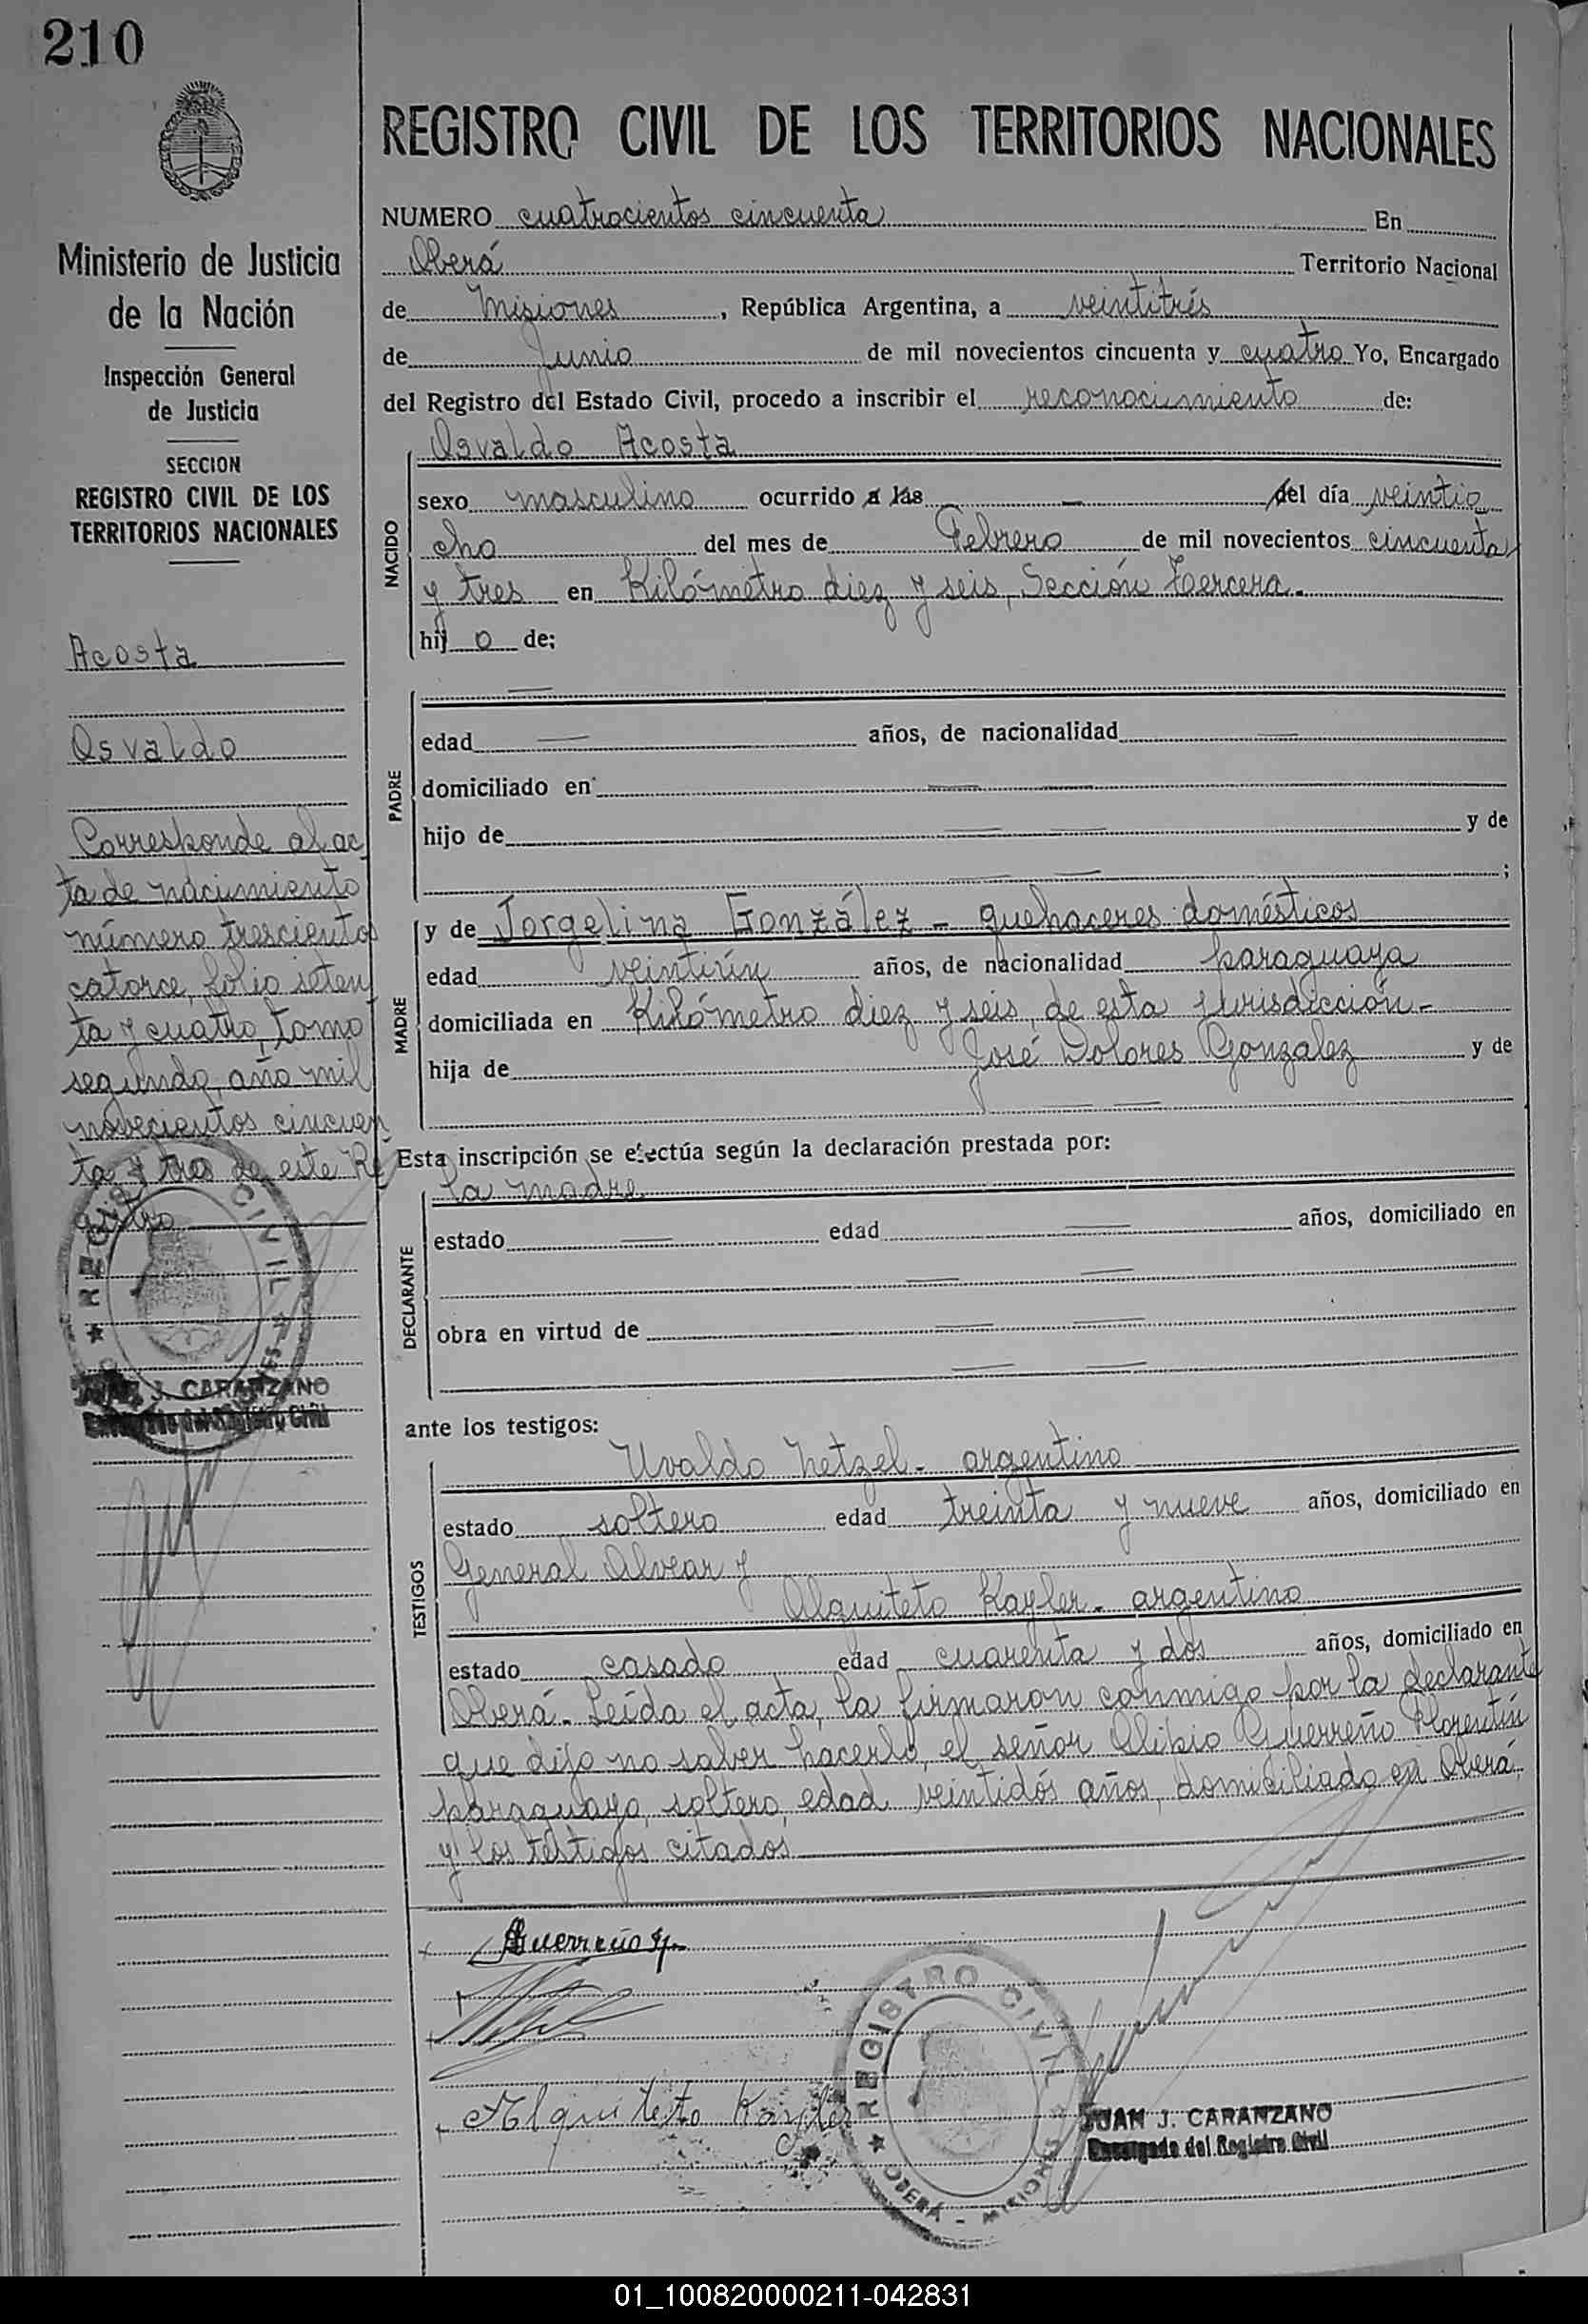 210
Ministerio de Justicia
de la Nación
Inspección General
de Justicia
SECCION
REGISTRO CIVIL DE LOS
TERRITORIOS NACIONALES
Acosta
Osvaldo
Corresponde al ac
ta de nacimiento
número trescientos
catorce, folio seten
ta y cuatro, tomo
segundo, año mil
novecientos cincuen
ta y tres de este Re
gistro
REGISTRO CIVIL
JUAN J. CARANZANO
Encargado del Registro Civil
REGISTRO CIVIL DE LOS TERRITORIOS NACIONALES
NUMERO cuatrocientos cincuenta En
Oberá Territorio Nacional
de Misiones, República Argentina, a veintitrés
de Junio de mil novecientos cincuenta y cuatro Yo, Encargado
del Registro del Estado Civil, procedo a inscribir el reconocimiento de:
Osvaldo Acosta
NACIDO
sexo masculino ocurrido a las — del día veintio
cho del mes de Febrero de mil novecientos cincuenta
y tres en Kilómetro diez y seis, Sección Tercera.
hij o de;
PADRE
edad — años, de nacionalidad —
domiciliado en — —
hijo de — — y de
— — ;
MADRE
y de Jorgelina González - quehaceres domésticos
edad veintiún años, de nacionalidad paraguaya
domiciliada en Kilómetro diez y seis, de esta jurisdicción -
hija de José Dolores Gonzalez y de
— —
Esta inscripción se efectúa según la declaración prestada por:
la madre
DECLARANTE
estado — edad — años, domiciliado en
— —
obra en virtud de — —
— —
ante los testigos:
TESTIGOS
Uvaldo Hetzel - argentino
estado soltero edad treinta y nueve años, domiciliado en
General Alvear y
Alquiteto Kayler - argentino
estado casado edad cuarenta y dos años, domiciliado en
Oberá - Leída el acta, la firmaron conmigo por la declarante
que dijo no saber hacerlo, el señor Alipio Guerreño Florentín
paraguayo, soltero, edad veintidós años, domiciliado en Oberá,
y los testigos citados
Alquiteto Kayler
REGISTRO CIVIL
OBERÁ - MISIONES
JUAN J. CARANZANO
Encargado del Registro Civil
01_100820000211-042831